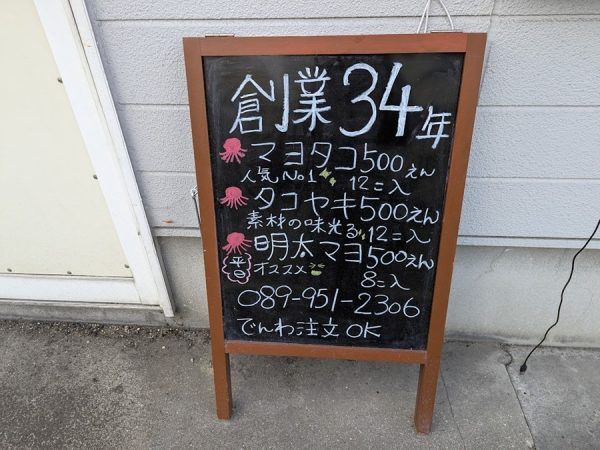 創業34年
マヨタコ500えん
人気No1 12コ入
タコヤキ500えん
素材の味光る 12コ入
明太マヨ500えん
平日 オススメ 8コ入
089-951-2306
でんわ注文OK